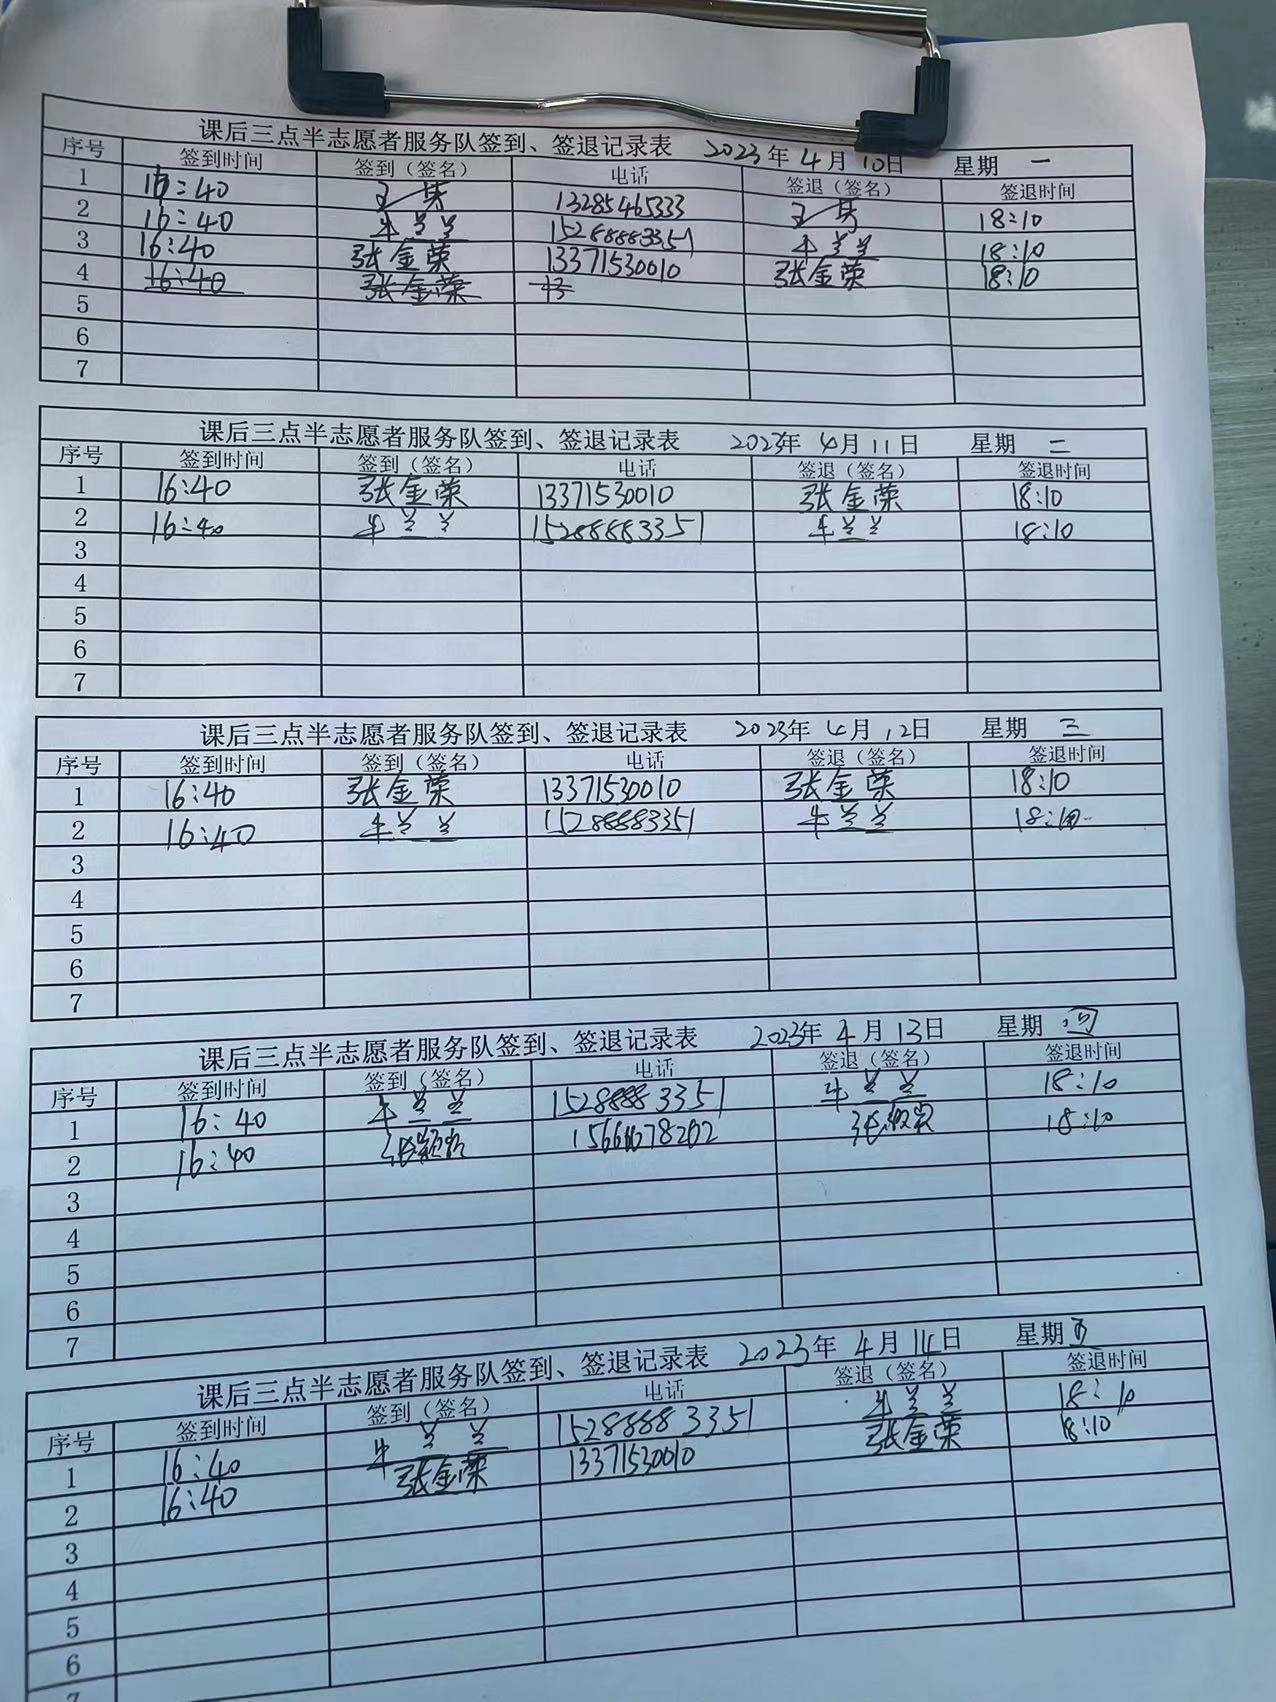 课后三点半志愿者服务队签到、签退记录表 2023年 4月 10日 星期 一
序号 签到时间 签到（签名） 电话 签退（签名） 签退时间
1 16:40 13285465333 18:10
2 16:40 牛兰兰 15288883351 牛兰兰 18:10
3 16:40 张金荣 13371530010 张金荣 18:10
4 16:40 张金荣
5
6
7
课后三点半志愿者服务队签到、签退记录表 2023年 4月 11日 星期 二
序号 签到时间 签到（签名） 电话 签退（签名） 签退时间
1 16:40 张金荣 13371530010 张金荣 18:10
2 16:40 牛兰兰 15288883351 牛兰兰 18:10
3
4
5
6
7
课后三点半志愿者服务队签到、签退记录表 2023年 4月 12日 星期 三
序号 签到时间 签到（签名） 电话 签退（签名） 签退时间
1 16:40 张金荣 13371530010 张金荣 18:10
2 16:40 牛兰兰 15288883351 牛兰兰 18:10
3
4
5
6
7
课后三点半志愿者服务队签到、签退记录表 2023年 4月 13日 星期 四
序号 签到时间 签到（签名） 电话 签退（签名） 签退时间
1 16:40 牛兰兰 15288883351 牛兰兰 18:10
2 16:40 18:10
3
4
5
6
7
课后三点半志愿者服务队签到、签退记录表 2023年 4月 14日 星期 五
序号 签到时间 签到（签名） 电话 签退（签名） 签退时间
1 16:40 牛兰兰 15288883351 牛兰兰 18:10
2 16:40 张金荣 13371530010 张金荣 18:10
3
4
5
6
7